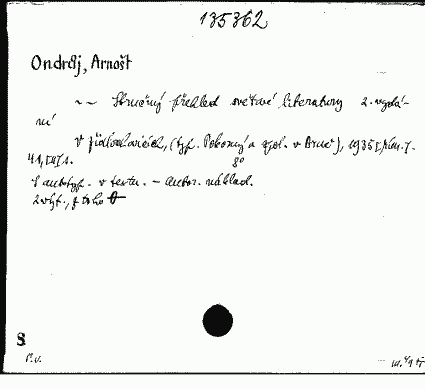 135362
Ondrěj, Arnošt
~~ Stručný přehled světové literatury 2. vydá-
ní
V Židlochovicích, (typ. Pokorný a spol. v Brně), 1935
41, 8°
S autotyp. v textu. – Autor. náklad.
2 výt., z toho
S
P.v.